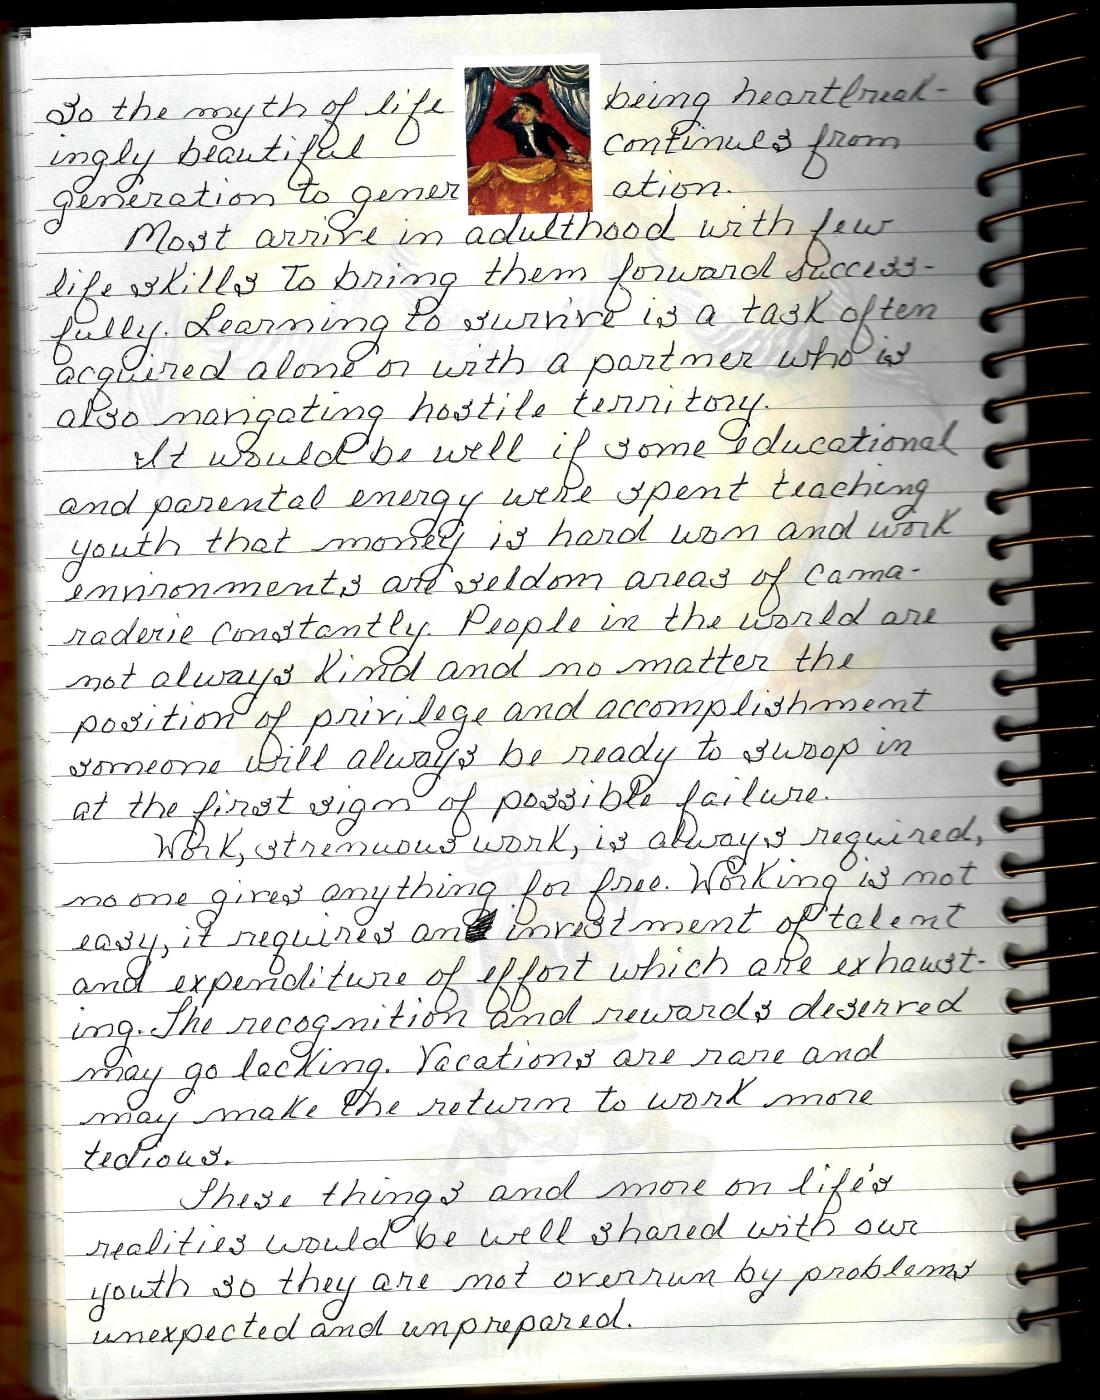 So the myth of life being heartbreak-
ingly beautiful continues from
generation to gener ation.
Most arrive in adulthood with few
life skills to bring them forward success-
fully. Learning to survive is a task often
acquired alone or with a partner who is
also navigating hostile territory.
It would be well if some educational
and parental energy were spent teaching
youth that money is hard won and work
environments are seldom areas of cama-
raderie constantly. People in the world are
not always kind and no matter the
position of privilege and accomplishment
someone will always be ready to swoop in
at the first sign of possible failure.
Work, strenuous work, is always required,
no one gives anything for free. Working is not
easy, it requires an investment of talent
and expenditure of effort which are exhaust-
ing. The recognition and rewards deserved
may go lacking. Vacations are rare and
may make the return to work more
tedious.
These things and more on life's
realities would be well shared with our
youth so they are not overrun by problems
unexpected and unprepared.